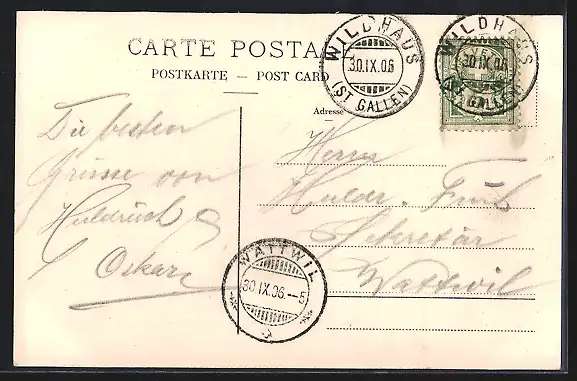 CARTE POSTA
POSTKARTE — POST CARD
WILDHAUS
30.IX.06
(ST. GALLEN)
WILDHAUS
30.IX.06
(ST. GALLEN)
Adresse
Die besten
Grüsse von
Huldreich
Oskar
Herrn
Huldr.
Sekretär
Wattwil
WATTWIL
30.IX.06.–5